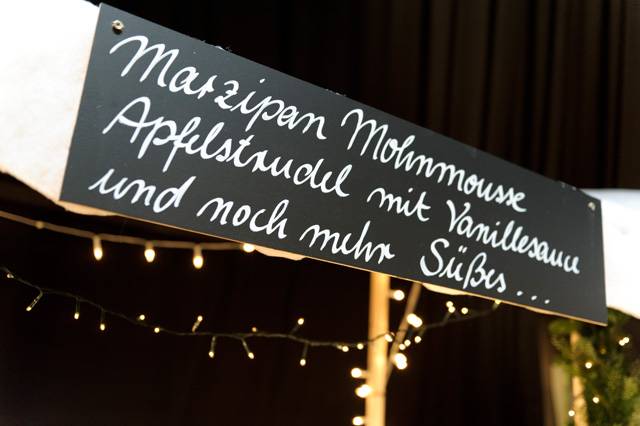 Marzipan Mohnmousse
Apfelstrudel mit Vanillesauce
und noch mehr Süßes...